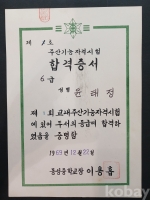 제 1 호
주산기능자격시험
합격증서
6급
성명 윤태정
제 회 교내주산기능자격시험
에 있어 두서의 등급에 합격하
였음을 증명함
1969년 12월 22일
홍성중학교장 이용흡
kobay